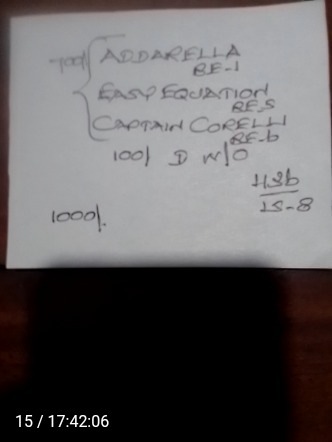 700/ ADDARELLA
BE-1
EASY EQUATION
BE-5
CAPTAIN CORELLI
BE-6
100/ D W/O
436
15-8
1000/.
15 / 17:42:06